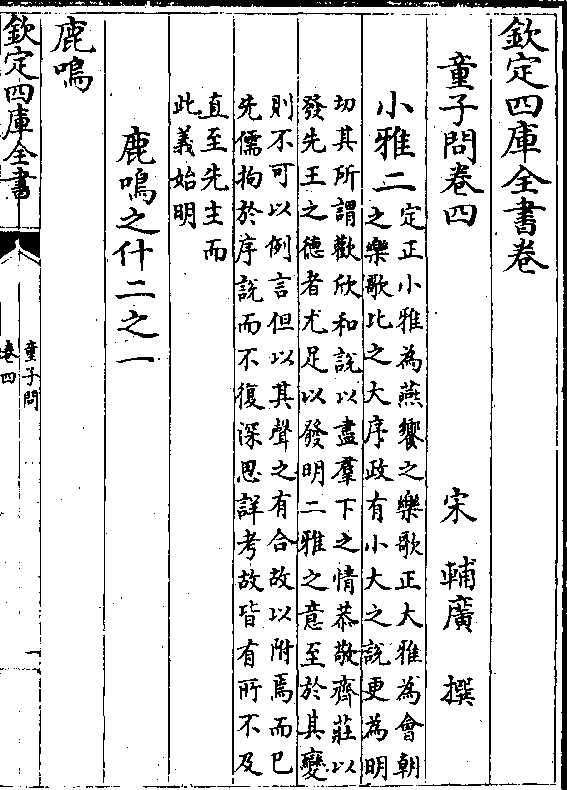 欽定四庫全書卷
童子問卷四 宋 輔廣 撰
小雅二
定正小雅為燕饗之樂歌正大雅為會朝
之樂歌比之大序政有小大之說更為明
切其所謂歡欣和說以盡羣下之情恭敬齊莊以
發先王之德者尤足以發明二雅之意至於其變
則不可以例言但以其聲之有合故以附焉而已
先儒拘於序說而不復深思詳考故皆有所不及
直至先生而
此義始明
鹿鳴之什二之一
鹿鳴
欽定四庫全書
童子問
卷四
一